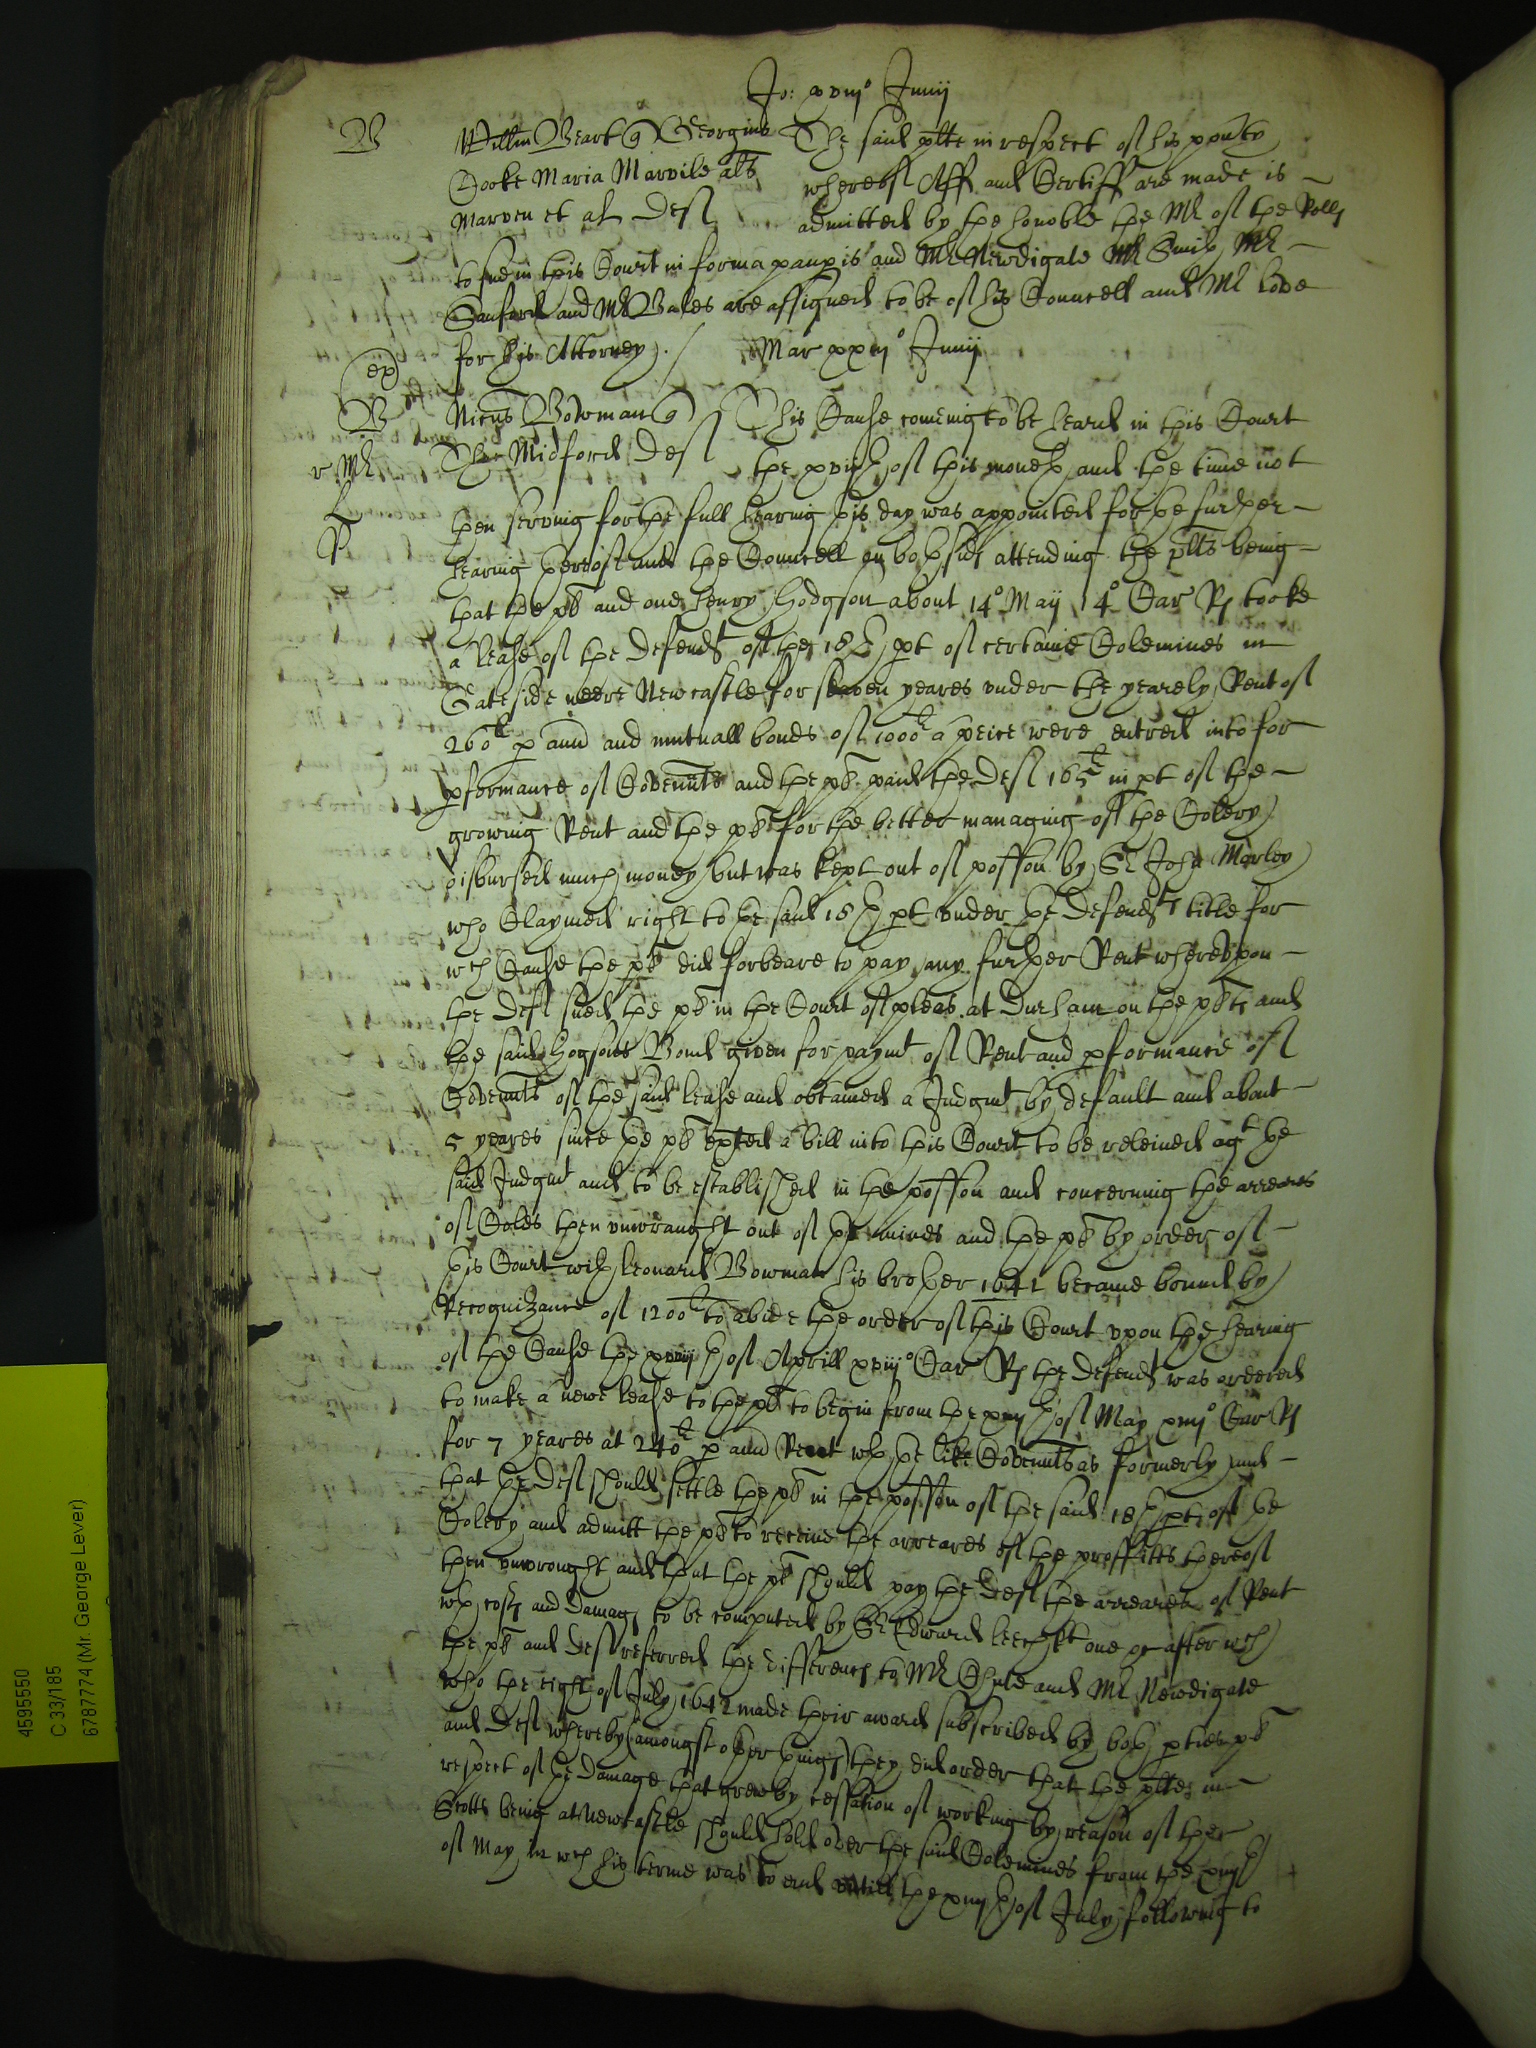 Jo: xviijo Junij
B
Willm Beart q Georgius
Cooke Maria Marvile als
Marven et al Deft
The said plte in respect of his povtey
whereof Aff and Certiff are made is
admitted by the honoble the Mr of the Rolls
to sue in this Court in forma paupis and Mr Newdigate Mr Smith Mr
Sanford and Mr Bales are assigned to be of his Councell and Mr Love
for his Attorney).
Mar xxijo Junij
ex
B
r Mr
P
Nicus Bowman q
Tho: Midford Deft
This Cause coming to be heard in this Court
the xviijth of this moneth and the time not
then serving for the full hearing this day was appointed for the further
hearing thereof and the Councell on both sides attending the plts being
that the plt and one Henry Hodgson about 14o Maij 14o Car Rs tooke
a lease of the Defendt of the 18th pt of certaine Colemines in
Gateside neere Newcastle for seaven yeares vnder the yearely Rent of
260li p ann and mutuall bonds of 1000li a peice were entred into for
pformance of Covennts and the plt paid the Deft 165li in pt of the
growing Rent and the plt for the better managing of the Colery
disbursed much money but was kept out of posson by Sr John Marley
who Claymed right to the said 18th pt vnder the Defendts title for
wch Cause the plt did forbeare to pay any further Rent wherevpon
the Deft sued the plt in the Court of pleas at Durham on the plts and
the said Hogsons Bond given for paymt of Rent and pformance of
Covennts of the said lease and obtained a Judgmt by default and about
5 yeares since the plt exted a bill into this Court to be releived agt the
said Judgmt and to be established in the posson and concerning the arreares
of Coles then vnwrought out of the mines and the plt by order of
this Court with Leonard Bowman his brother 1641 became bound by
Recognizance of 1200li to abide the order of this Court vpon the hearing
of the Cause the xviijth of Aprill xviijo Car Rs the Defendt was ordered
to make a newe lease to the plt to begin from the xiijth of May xiiijo Car Rs
for 7 yeares at 240li p ann Rent wth the like Covennts as formerly and
that the Deft should settle the plt in the posson of the said 18th pt of the
Colery and admitt the plt to receive the arreares of the proffitts thereof
then vnwrought and that the plt should pay the Deft the arreares of Rent
wth costs and Damags to be computed by Sr Edward Leech kt one &c after wch
the plt and Deft referred the differences to Mr Chute and Mr Newdigate
who the eight of July 1642 made their award subscribed by both pties plt
and Deft whereby (amongst other things) they did order that the plte in
respect of the Damage that grew by cessation of working by reason of the
Scotts being at Newcastle should hold over the said Colemines from the xiijth
of May in wch his terme was to end vntill the xiijth of July following to
4595550
C 33/185
6787774 (Mr. George Lever)